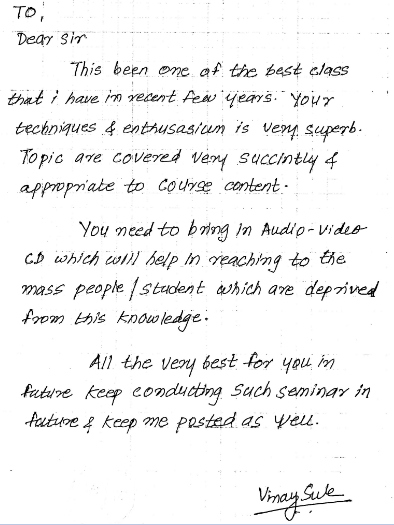 TO,
Dear Sir
This been one of the best class
that i have in recent few years. Your
techniques & enthusasium is very superb.
Topic are covered very succintly &
appropriate to course content.
You need to bring in Audio-video
CD which will help in reaching to the
mass people/student which are deprived
from this knowledge.
All the very best for you in
future keep conducting such seminar in
future & keep me posted as well.
Vinay Sule